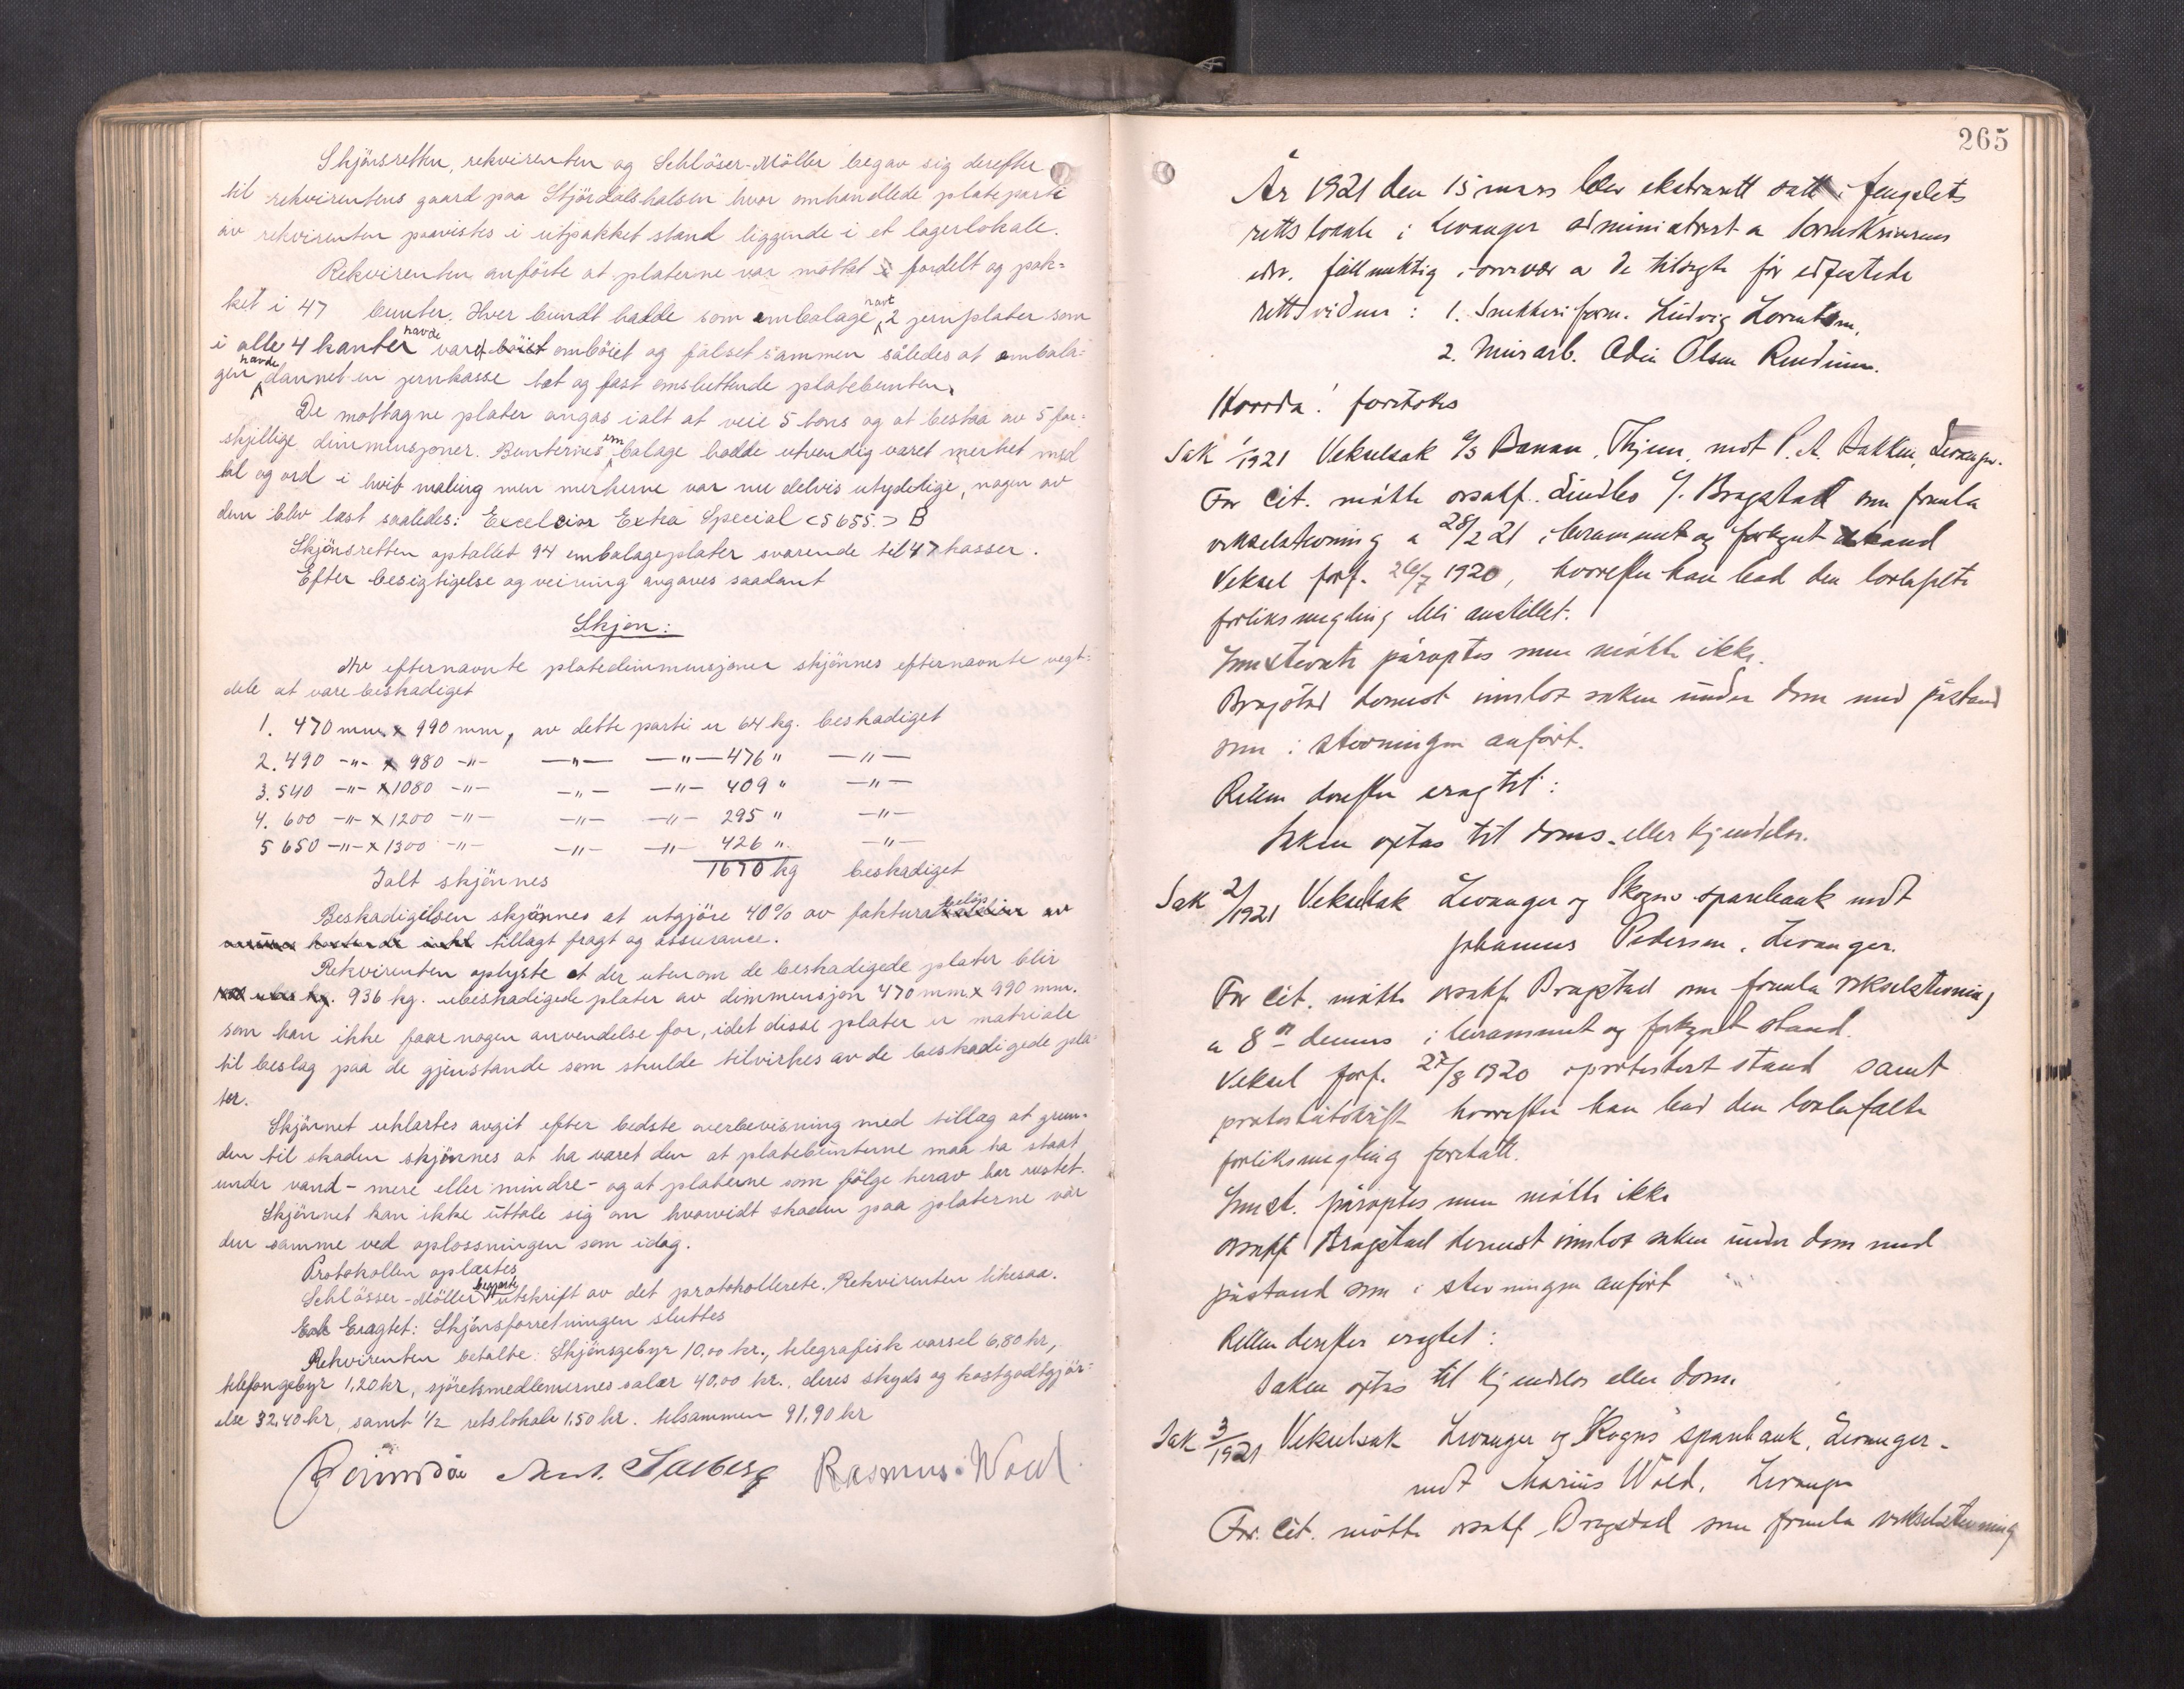 Skjönsretten, rekvirenten og Schlöser-Möller begav sig derefter
til rekvirentens gaard paa Stjördalshalsen hvor omhandlede plateparti
av rekvirenten paavistes i utpakket stand liggende i et lagerlokale.
Rekvirenten anförte at platerne var mottat fordelt og pak-
ket i 47 bunter. Hver bundt hadde som embalage havt 2 jernplater som
i alle 4 kanter havde varet böiet omböiet og falset sammen således at embala-
gen havde dannet en jernkasse tæt og fast omsluttende platebunten.
De mottagne plater angas ialt at veie 5 tons og at bestaa av 5 for-
skjellige dimmensjoner. Bunternes embalage hadde utvendig været merket med
tal og ord i hvit maling men merkerne var nu delvis utydelige, nogen av
dem blev læst saaledes: Excelsior Extra Special <5655.> B
Skjönsretten optallet 94 embalageplater svarende til 47 kasser.
Efter besigtigelse og veining avgaves saadant
Skjön:
Av efternavnte platedimmensjoner skjönnes efternavnte vegt-
dele at være beskadiget
1. 470 mm. x 990 mm, av dette parti er 64 kg. beskadiget
2. 490 -"- x 980 -"- -"- -"- 476 " -"-
3. 540 -"- x 1080 -"- -"- -"- 409 " -"-
4. 600 -"- x 1200 -"- -"- -"- 295 " -"-
5 650 -"- x 1300 -"- -"- -"- 426 " -"-
Ialt skjönnes 1670 kg beskadiget
Beskadigelsen skjönnes at utgjöre 40% av faktura beløp av
tillagt fragt og assurance.
Rekvirenten oplyste at der utenom de beskadigede plater blir
936 kg. ubeskadigede plater av dimmensjon 470 mm x 990 mm.
som han ikke faar nogen anvendelse for, idet disse plater er matriale
til beslag paa de gjenstande som skulde tilvirkes av de beskadigede pla-
ter.
Skjönnet erklærtes avgit efter bedste overbevisning med tillæg at grun-
den til skaden skjönnes at ha været den at platebunterne maa ha staat
under vand - mere eller mindre - og at platerne som fölge herav har rustet.
Skjönnet kan ikke uttale sig om hvorvidt skaden paa platerne var
den samme ved oplossningen som idag.
Protokollen oplæstes
Schlösser-Möller begjærte utskrift av det protokollerete. Rekvirenten likesaa.
Eragtet: Skjönsforretningen sluttes
Rekvirenten betalte: Skjönsgebyr 10,00 kr., telegrafisk varsel 6,80 kr,
telefongebyr 1,20 kr, sjöretsmedlemernes salær 40,00 kr., deres skyds og kostgodtgjör-
else 32,40 kr, samt 1/2 retslokale 1,50 kr. tilsammen 91,90 kr
Rasmus Wold
265
År 1921 den 15 mars blev ekstrarett satt i fengslets
rettslokale i Levanger administrert a sorenskriverens
edsv. fullmektig i overvær a de tilsagte før edfestede
rettsvidner: 1. Snekkeriform. Ludvig Lorentsen,
2. Murarb. Odin Olsen
Hvorda! foretokes
Sak 1/1921 Vekselsak a/s Banan, Thjem, mot P. A. Bakken, Levanger.
For Cit. møtte orsakf. Lindbo v/. Bragstad som fremla
vekselstevning a 28/2 21 i berammet og forkynt stand
Veksel forf. 26/7 1920, hvorefter han bad den lovbefalte
forliksmegling bli anstillet.
Innstevnte påroptes men møtte ikke.
Bragstad dernest innlot saken under dom med påstand
som i stevningen anført.
Retten derefter eragtet:
Saken optas til doms- eller kjendelse.
Sak 2/1921 Vekselsak Levanger og Skogns sparebank mot
Johannes Pedersen, Levanger.
For Cit. møtte orsakf. Bragstad som fremla vekselstevning
a 8de dennes i berammet og forkynt stand.
Veksel forf. 27/8 1920 i protestert stand samt
hvorefter han bad den lovbefalte
forliksmegling foretatt.
Innst. påroptes men møtte ikke
orsakf Bragstad dernest innlot saken under dom med
påstand som i stevningen anført
Retten derefter eragtet:
Saken optas til kjendelse eller dom.
Sak 3/1921 Vekselsak Levanger og Skogns sparebank, Levanger-
mot Marius Wold, Levanger
For. Cit. møtte orsakf. Bragstad som fremla vekselstevning